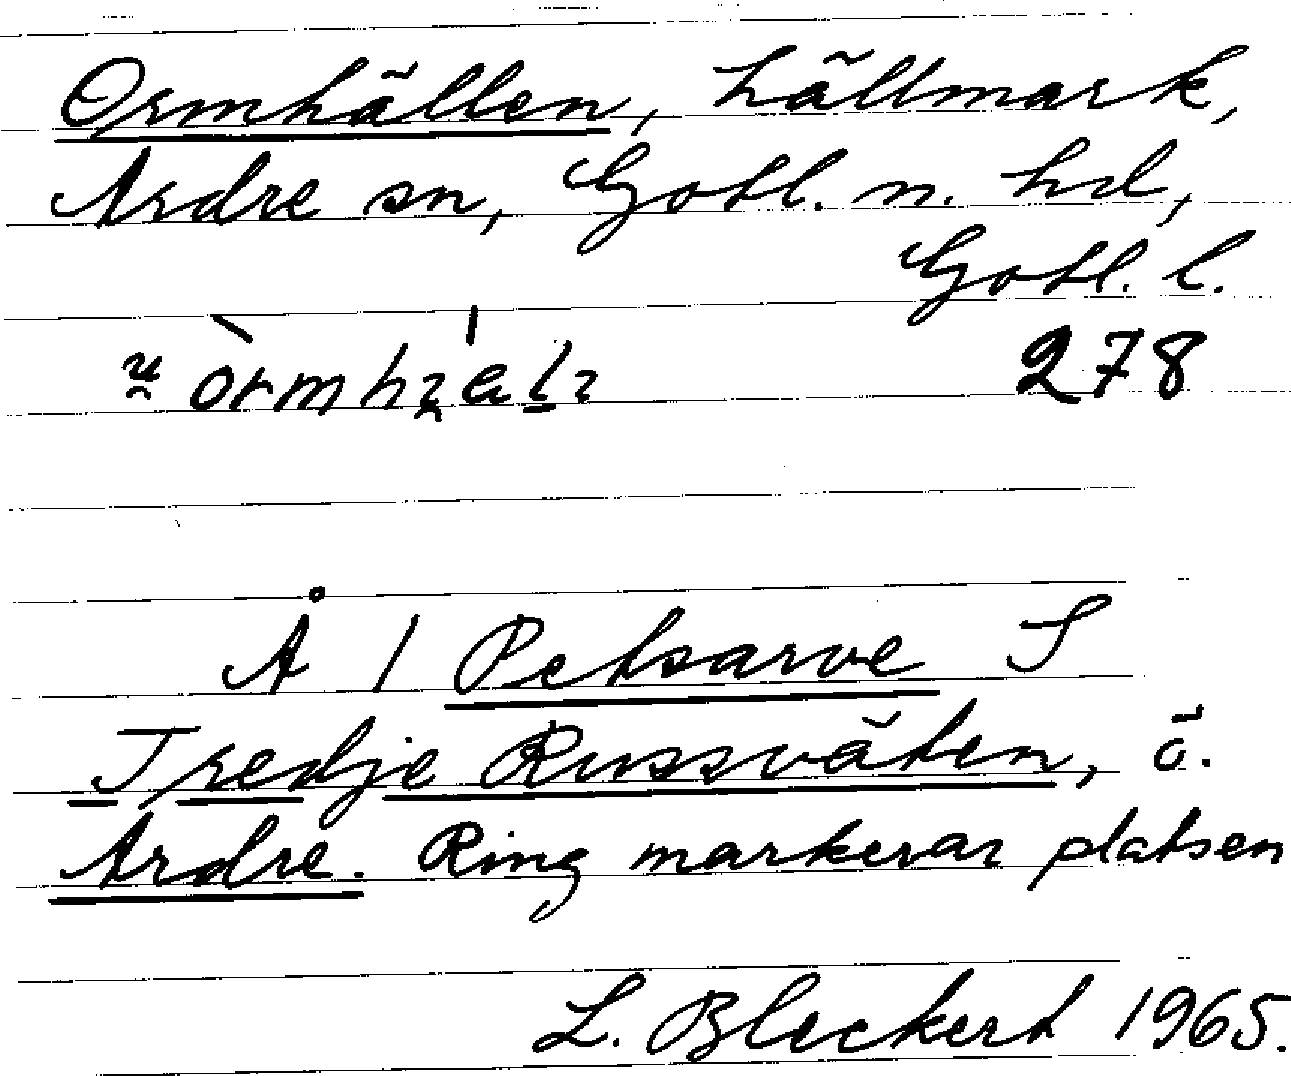 Ormhällen, hällmark,
Ardre sn, Gotl. n. hd,
Gotl. l.
278
Å 1 Petsarve S
Tredje Russväten, ö.
Ardre. Ring markerar platsen
L. Bleckert 1965.